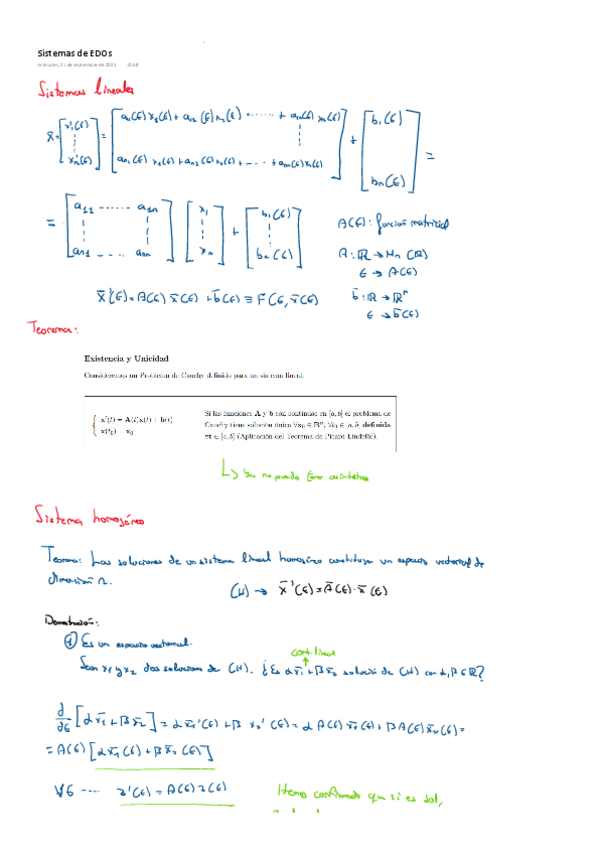 Sistemas de EDOs
miércoles, 21 de septiembre de 2022
Sistemas lineales
x̄ = [x₁'(t) ⋮ xₙ'(t)] = [a₁₁(t) x₁(t) + a₁₂(t) x₂(t) ...... + a₁ₙ(t) xₙ(t) ⋮ aₙ₁(t) x₁(t) + aₙ₂(t) x₂(t) + .... + aₙₙ(t) xₙ(t)] + [b₁(t) ⋮ bₙ(t)] =
= [a₁₁ ...... a₁ₙ ⋮ aₙ₁ .... aₙₙ] [x₁ ⋮ xₙ] + [b₁(t) ⋮ bₙ(t)]
A(t): función matricial
A: ℝ → Mₙ(ℝ)
t → A(t)
x̄'(t) = A(t) x̄(t) + b̄(t) ≡ F(t, x̄(t))
b̄: ℝ → ℝⁿ
t → b̄(t)
Teorema:
Existencia y Unicidad
Consideramos un Problema de Cauchy definido para un sistema lineal:
{ x'(t) = A(t)x(t) + b(t)
x(t₀) = x₀
Si las funciones A y b son continuas en [a, b] el problema de
Cauchy tiene solución única ∀x₀ ∈ ℝⁿ, ∀t₀ ∈ [a, b] definida
∀t ∈ [a, b] (Aplicación del Teorema de Picard Lindelöf).
↳ no puede tener asíntotas
Sistema homogéneo
Teorema: Las soluciones de un sistema lineal homogéneo constituyen un espacio vectorial de
dimensión n.
(H) → x̄'(t) = Ā(t)·x̄(t)
Demostración:
① Es un espacio vectorial.
comb. lineal
Sean x₁ y x₂ dos soluciones de (H). ¿Es αx̄₁ + βx̄₂ solución de (H) con α, β ∈ ℝ?
d/dt [αx̄₁ + βx̄₂] = αx̄₁'(t) + βx₂'(t) = αA(t)x̄₁(t) + βA(t)x̄₂(t) =
= A(t) [αx̄₁(t) + βx̄₂(t)]
∀t ---- z'(t) = A(t) z(t)
Hemos confirmado que si es sol,